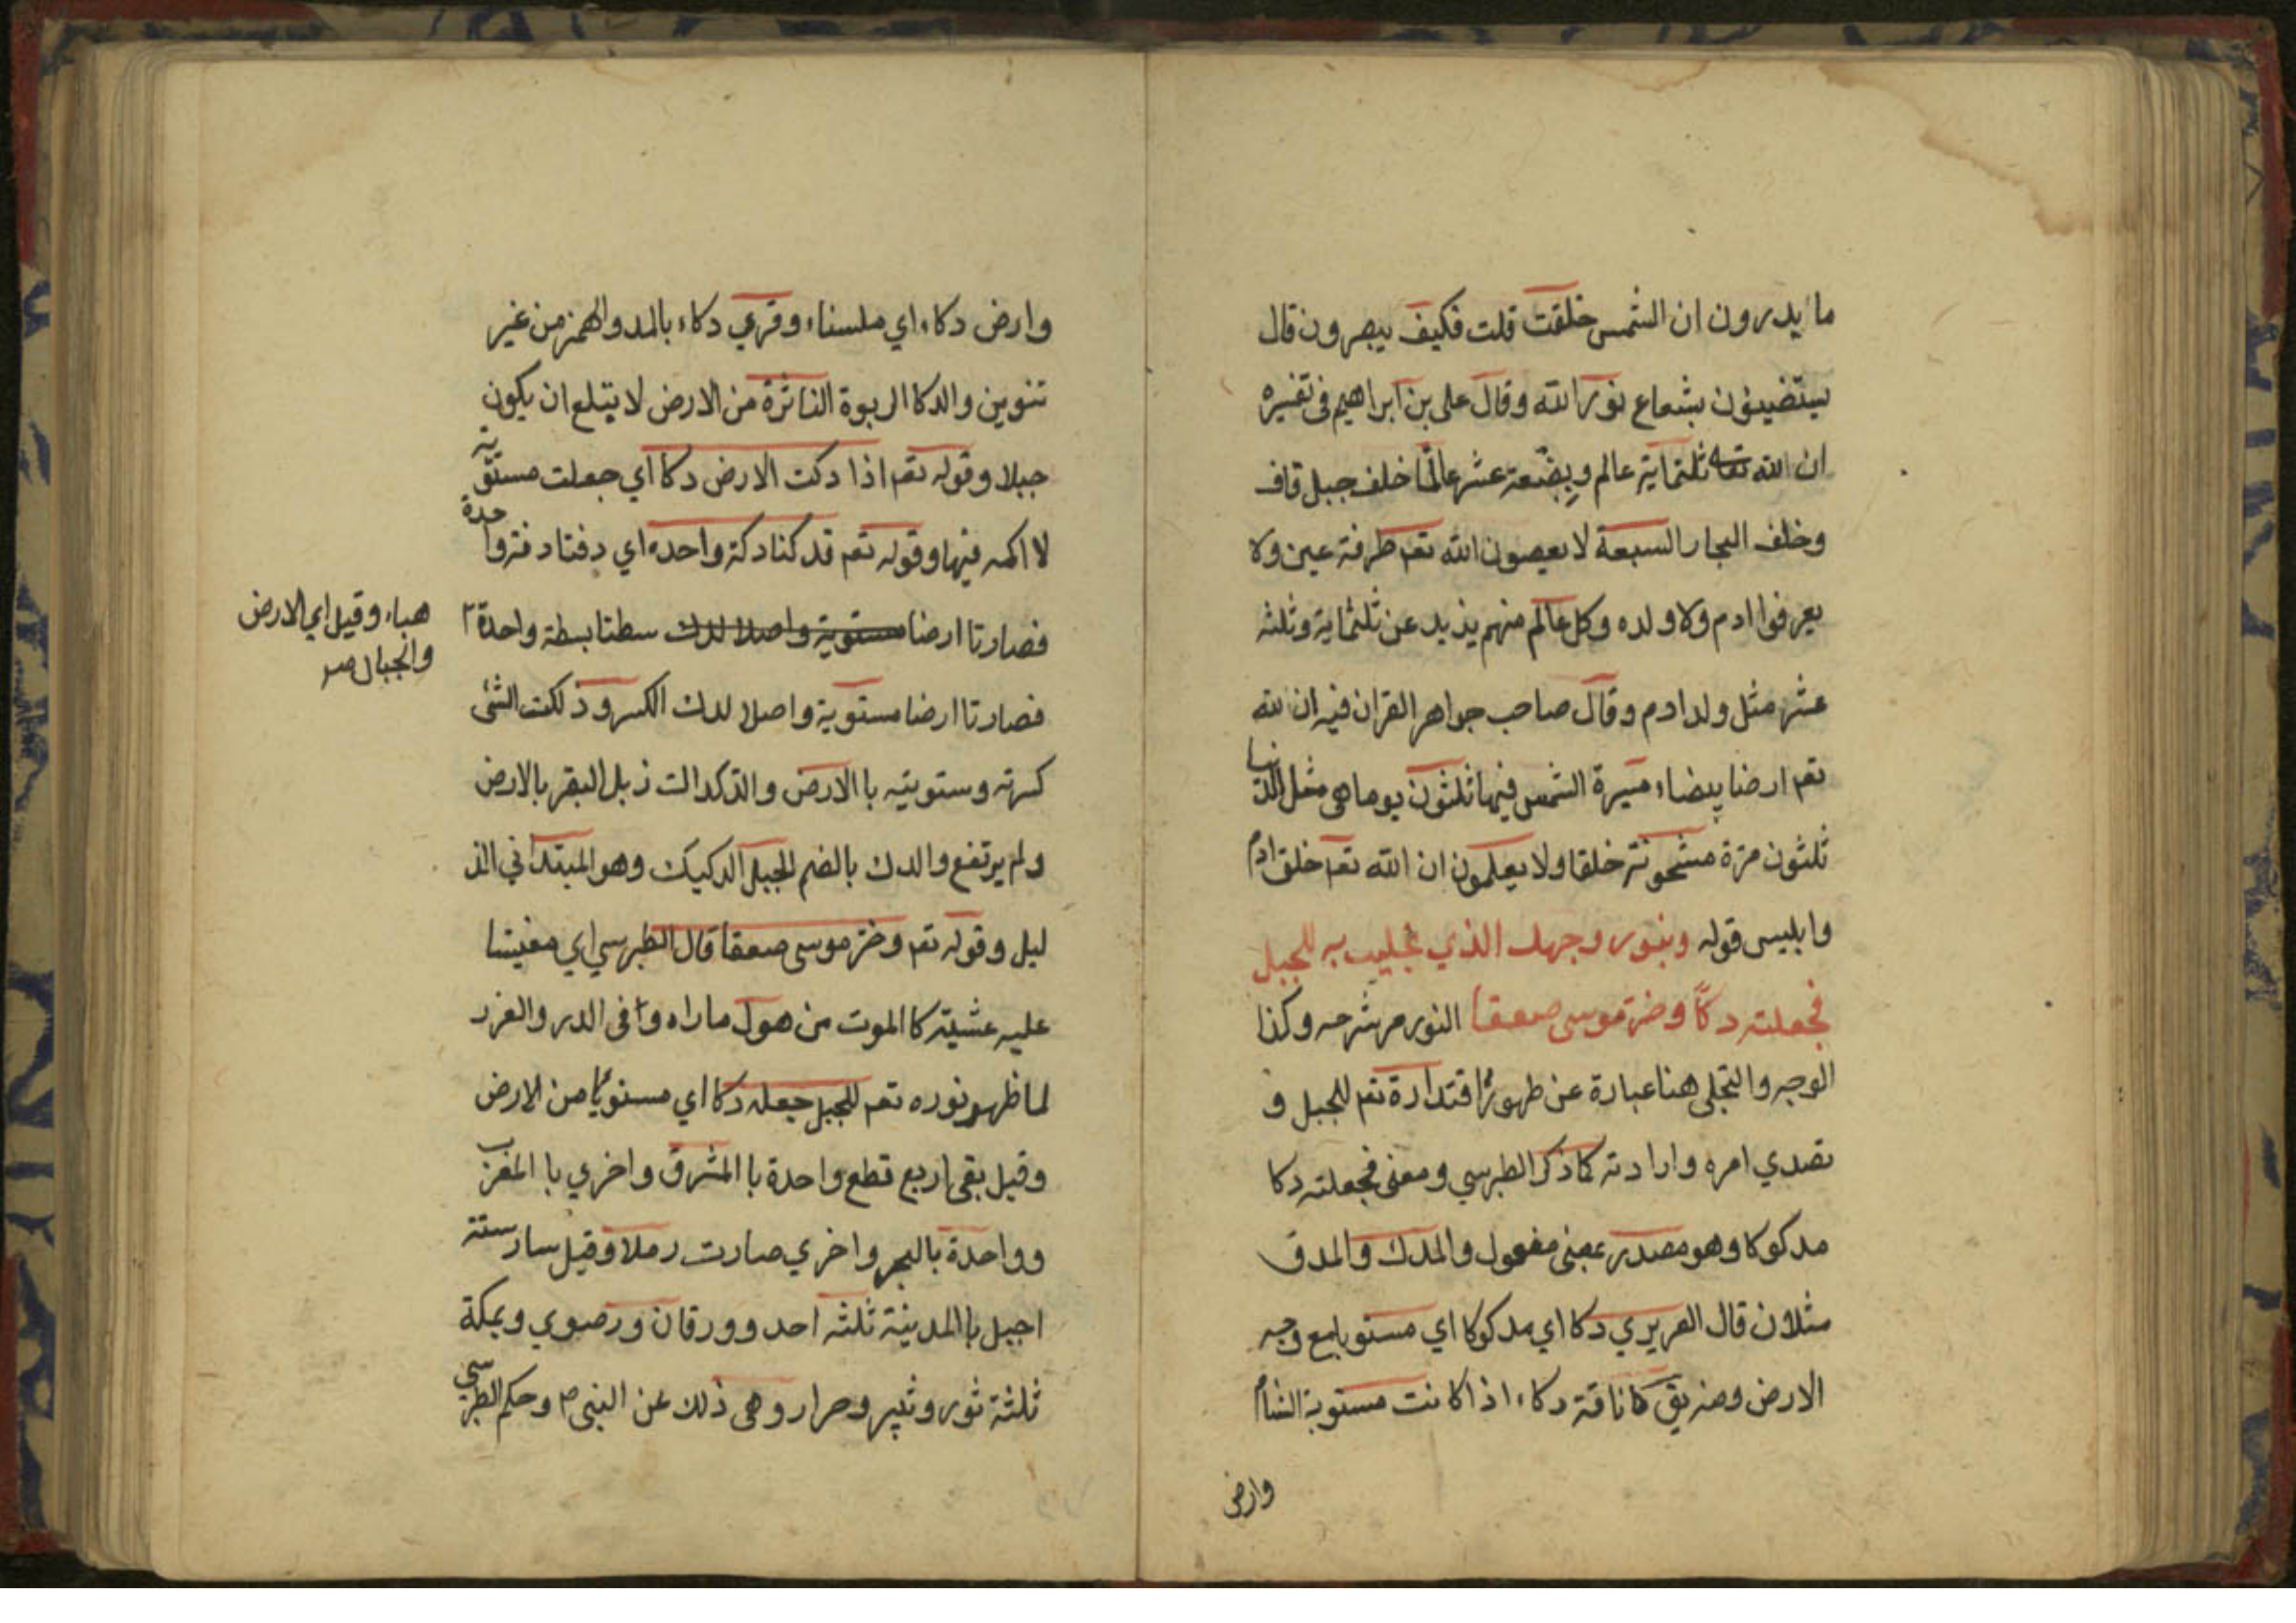 ما يدرون ان الشمس خلقت قلت فكيف يبصرون قال
يستضيئون بشعاع نور الله وقال علي بن ابراهيم في تفسيره
ان الله تعا ثلثماية عالم وبضعة عشر عالما خلف جبل قاف
وخلف البحار السبعة لا يعصون الله تعم طرفة عين ولا
يعرفوا ادم ولا ولده وكل عالم منهم يزيد عن ثلثماية وثلثه
عشر مثل ولد ادم وقال صاحب جواهر القران فيه ان لله
تعم ارضا بيضاء مسيرة الشمس فيها ثلثون يوما هي مثل الدنيا
ثلثون مرة مشحونة خلقا ولا يعلمون ان الله تعم خلق ادم
وابليس قوله وبنور وجهك الذي تجليت به للجبل
فجعلته دكا وخر موسى صعقا النور مر شرحه وكذا
الوجه والتجلي هنا عبارة عن ظهور اقتدارة تعم للجبل و
تصدي امره وارادته كما ذكر الطبرسي ومعنى فجعلته دكا
مدكوكا وهو مصدر بمعنى مفعول والمدك والمدق
مثلان قال العزيزي دكا اي مدكوكا اي مستويا مع وجه
الارض ومنه يق ناقة دكاء اذا كانت مستوية السنام
وارض
وارض دكاء اي ملسناء وقري دكاء بالمد والهمز من غير
تنوين والدكا الربوة الناتزة من الارض لا يتلع ان يكون
جبلا وقوله تعم اذا دكت الارض دكا اي جعلت مستوية
لا اكمه فيها وقوله تعم فدكتا دكة واحده اي دقتا دقة واحدة
فصارتا ارضا مستوية واصلا لدك سطتا بسطة واحدة
هباء وقيل اي الارض
والجبال صر
فصارتا ارضا مستوية واصلا لدك الكسر ودككت الشئ
كسرته وستويته با الارض والدكداك زبل البقر بالارض
ولم يرتفع والدك بالضم الجبل الدكيك وهو المبتدا في الذ
ليل وقوله تعم وخر موسى صعقا قال الطبرسي اي مغيشا
عليه عشيته كا الموت من هول ماراه وا في الدر والغرر
لما ظهر نوره تعم للجبل جعله دكا اي مستويا من الارض
وقيل بقى اربع قطع واحدة با المشرق واخري با المغرب
وواحدة بالبحر واخري صارت رملا وقيل سار ستة
اجبل با المدينة ثلثه احد وورقان ورضوي وبمكة
ثلثة ثور وثبير وحرا روهى ذلك عن النبي م وحكم الطبرسي